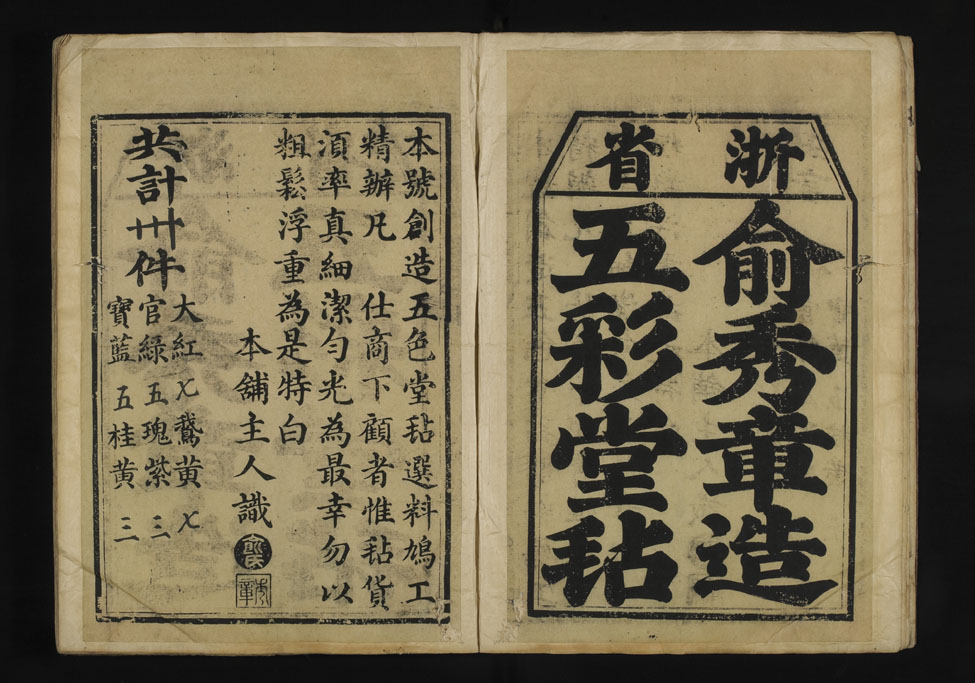 浙省
俞秀章造
五彩堂毡
本號創造五色堂毡選料鳩工
精辦凡 仕商下顧者惟毡貨
湏率真細潔勻光為最幸勿以
粗鬆浮重為是特白
本舖主人識
俞氏
秀章
共計卅件
大紅七鵝黃七
官綠五瑰紫三
寶藍五桂黃三